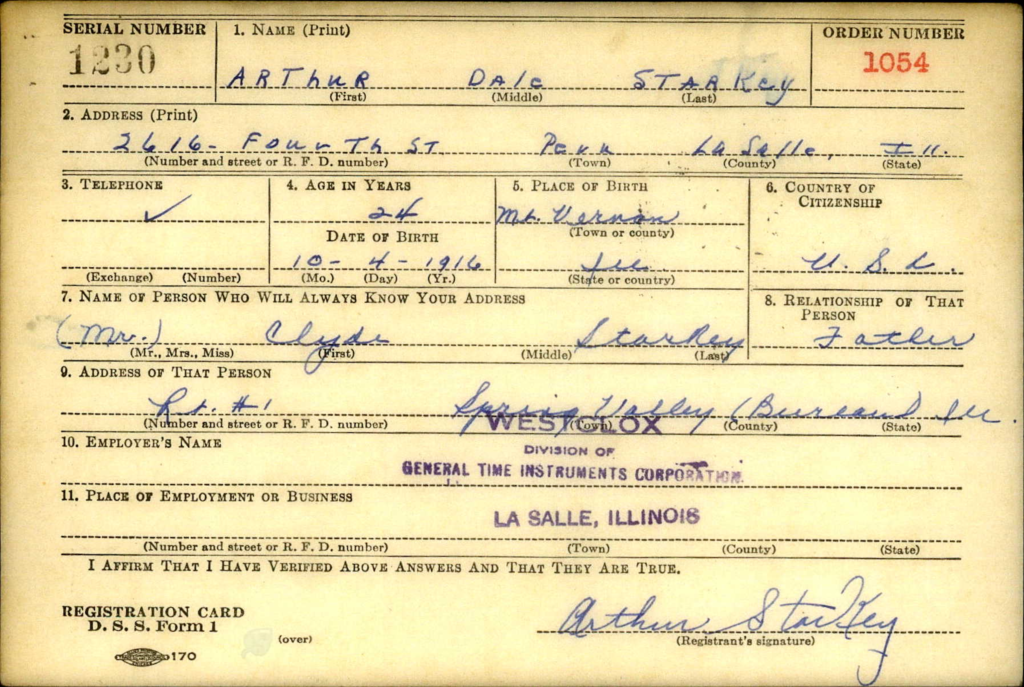 SERIAL NUMBER 1. NAME (Print) ORDER NUMBER
1230 ARThUR DALe STARKey 1054
(First) (Middle) (Last)
2. ADDRESS (Print)
2616- FourTh ST. Peru LaSalle, Ill.
(Number and street or R. F. D. number) (Town) (County) (State)
3. TELEPHONE 4. AGE IN YEARS 5. PLACE OF BIRTH 6. COUNTRY OF CITIZENSHIP
✓ 24 Mt. Vernon
(Town or county)
DATE OF BIRTH
10- 4- 1916 Ill. U. S. A.
(Exchange) (Number) (Mo.) (Day) (Yr.) (State or country)
7. NAME OF PERSON WHO WILL ALWAYS KNOW YOUR ADDRESS 8. RELATIONSHIP OF THAT PERSON
(Mr.) Clyde Starkey Father
(Mr., Mrs., Miss) (First) (Middle) (Last)
9. ADDRESS OF THAT PERSON
Rt. #1 Spring Valley (Bureau) Ill.
(Number and street or R. F. D. number) (Town) (County) (State)
WESTCLOX
10. EMPLOYER'S NAME
DIVISION OF
GENERAL TIME INSTRUMENTS CORPORATION.
11. PLACE OF EMPLOYMENT OR BUSINESS
LA SALLE, ILLINOIS
(Number and street or R. F. D. number) (Town) (County) (State)
I AFFIRM THAT I HAVE VERIFIED ABOVE ANSWERS AND THAT THEY ARE TRUE.
REGISTRATION CARD
D. S. S. Form 1
(over)
Arthur Starkey
(Registrant's signature)
170